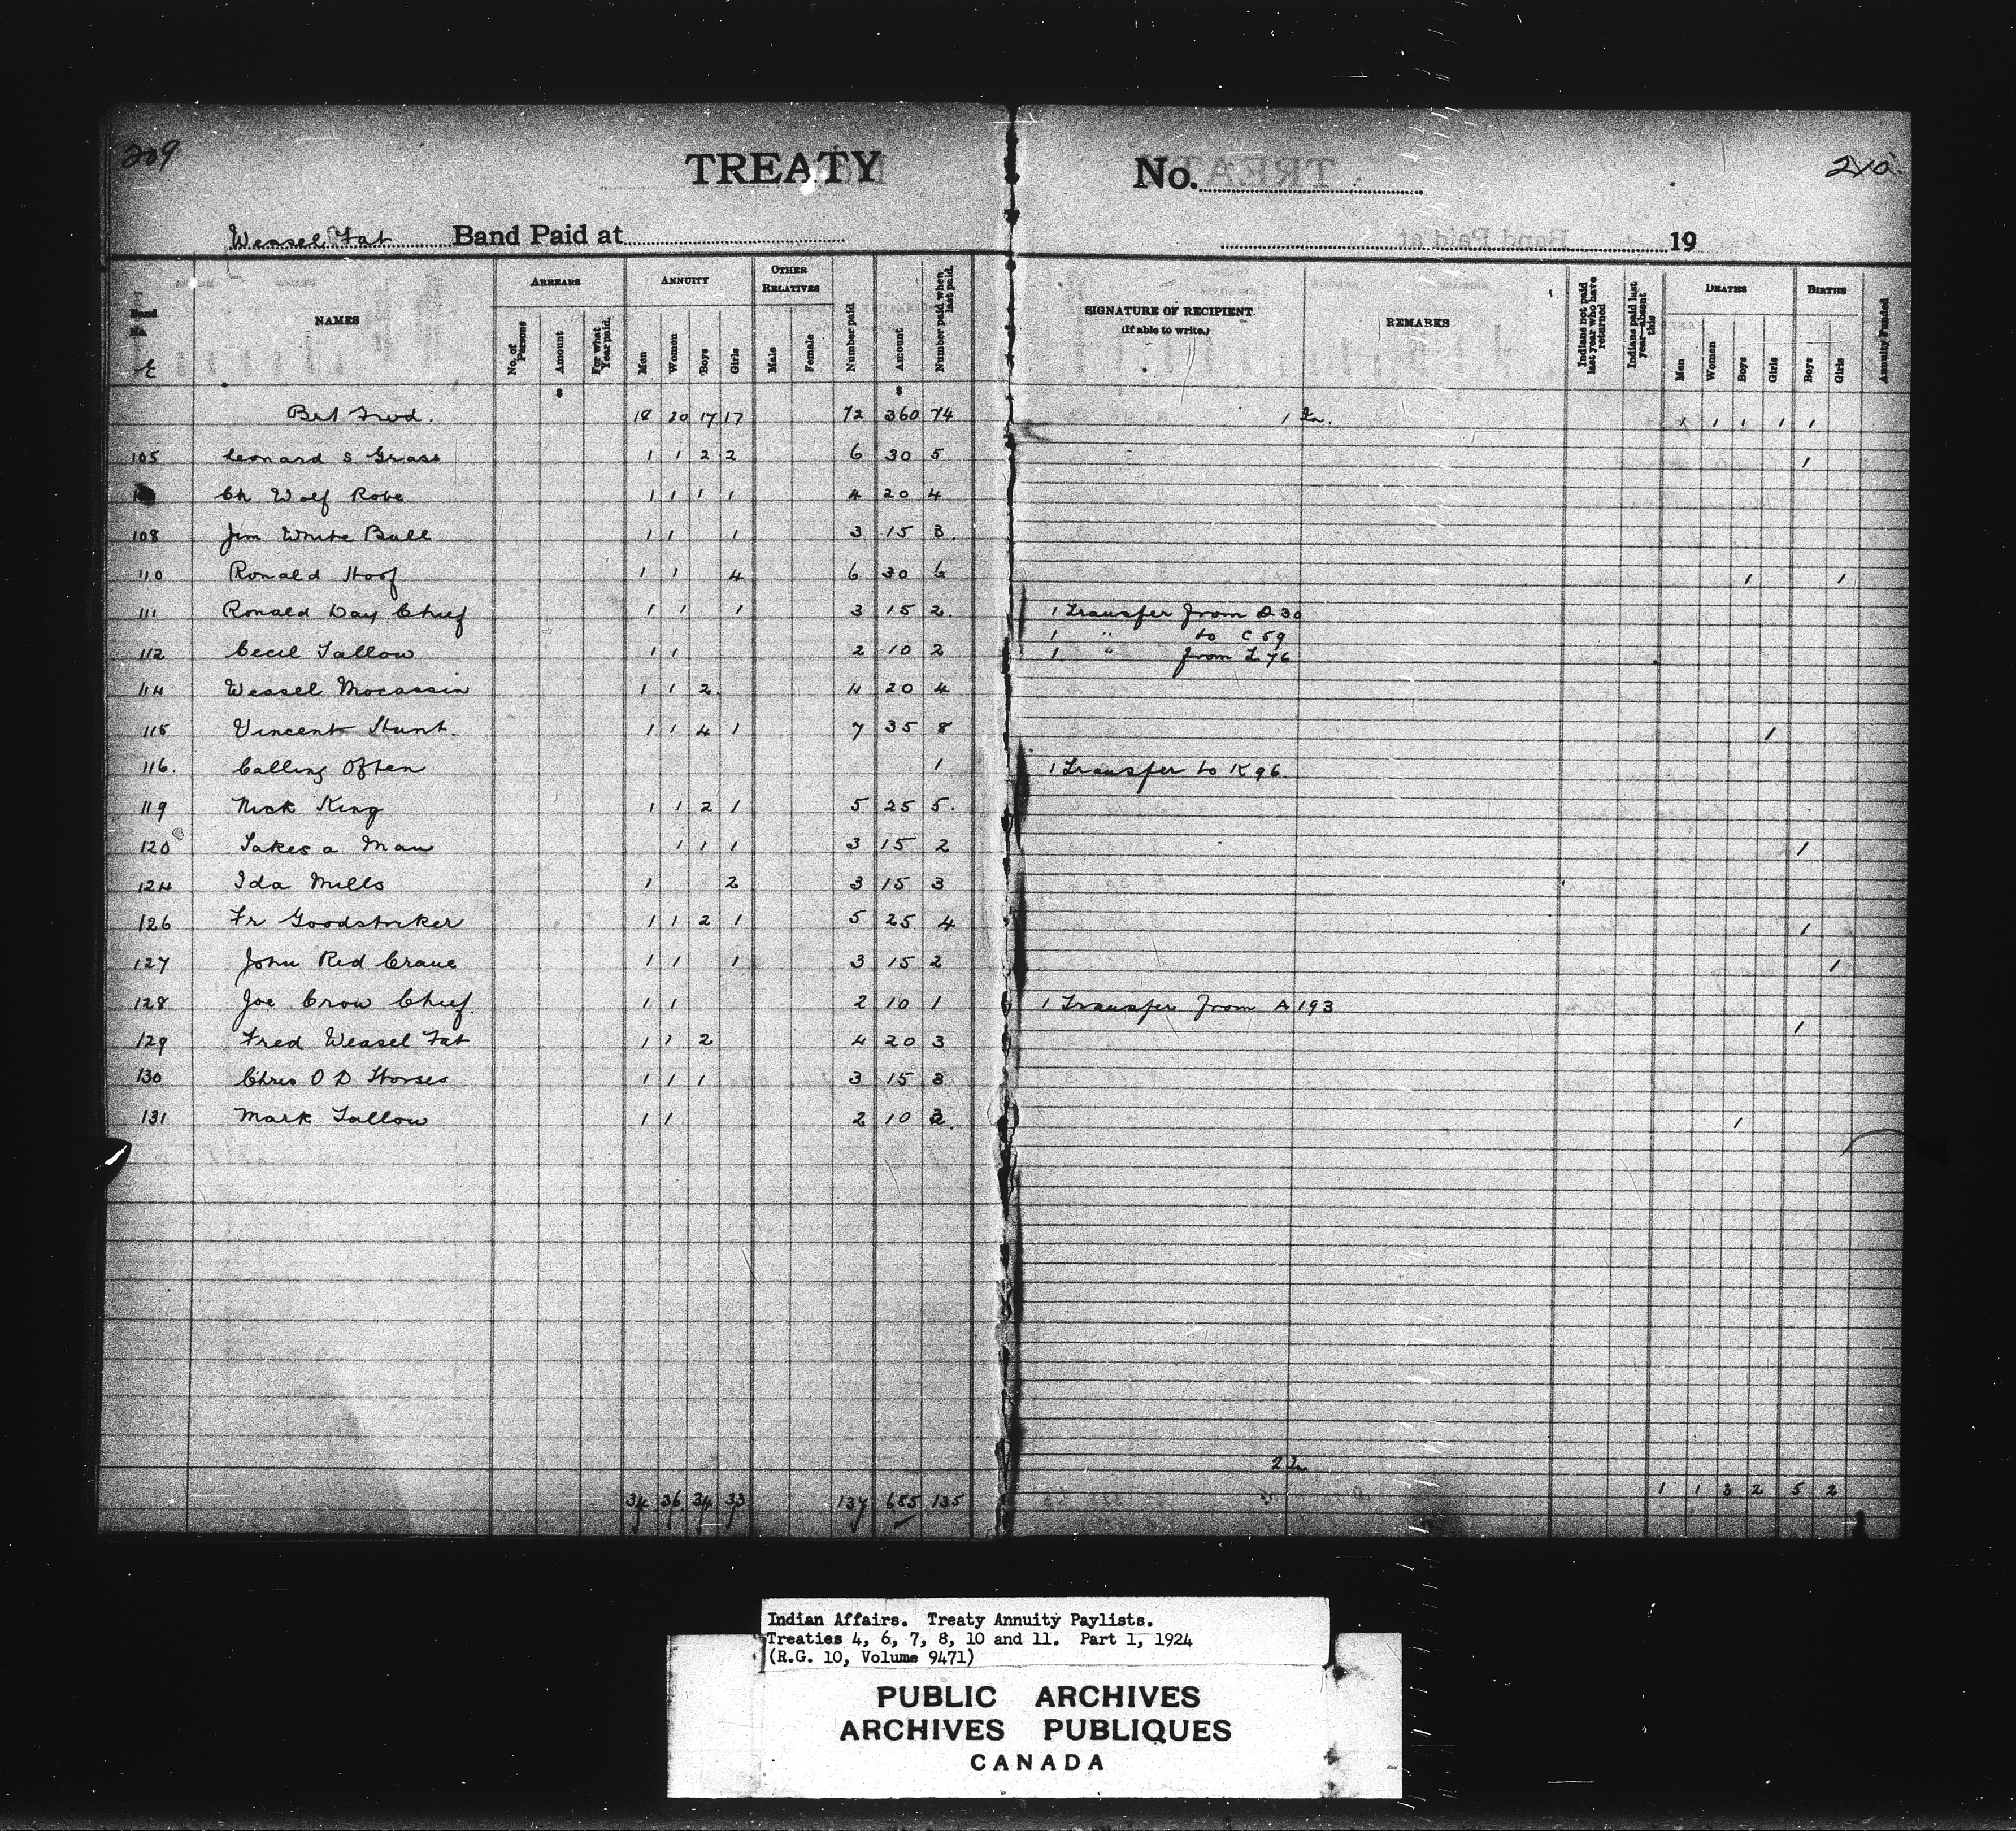 209
TREATY No.
210
Weasel Fat Band Paid at 19
Band No. NAMES ARREARS ANNUITY OTHER RELATIVES Number paid Amount Number paid when last paid. SIGNATURE OF RECIPIENT. (If able to write.) REMARKS Indians not paid last year who have returned Indians paid last year—absent this DEATHS BIRTHS Annuity Funded
E No. of Persons Amount For what Year paid. Men Women Boys Girls Male Female Men Women Boys Girls Boys Girls
$ $
Bt Frwd. 18 20 17 17 72 360 74 1 1 1 1 1 1
105 Leonard S Grass 1 1 2 2 6 30 5 1
Ch Wolf Robe 1 1 1 1 4 20 4
108 Jim White Bull 1 1 1 3 15 3
110 Ronald Hoof 1 1 4 6 30 6 1 1
111 Ronald Day Chief 1 1 1 3 15 2 1 Transfer from 30
1 " to C 59
112 Cecil Tallow 1 1 2 10 2 1 " from L 76
114 Weasel Mocassin 1 1 2 4 20 4
115 Vincent Hunt. 1 1 4 1 7 35 8 1
116. Calling Often 1 1 Transfer to K 96
119 Nick King 1 1 2 1 5 25 5
120 Takes a Man 1 1 1 3 15 2 1
124 Ida Mills 1 2 3 15 3
126 Fr Goodstriker 1 1 2 1 5 25 4 1
127 John Red Crane 1 1 1 3 15 2 1
128 Joe Crow Chief. 1 1 2 10 1 1 Transfer from A 193
129 Fred Weasel Fat 1 1 2 4 20 3 1
130 Chris O D Horses 1 1 1 3 15 3
131 Mark Tallow 1 1 2 10 3 1
2
34 36 34 33 137 685 135 1 1 3 2 5 2
Indian Affairs. Treaty Annuity Paylists.
Treaties 4, 6, 7, 8, 10 and 11. Part 1, 1924
(R.G. 10, Volume 9471)
PUBLIC ARCHIVES
ARCHIVES PUBLIQUES
CANADA